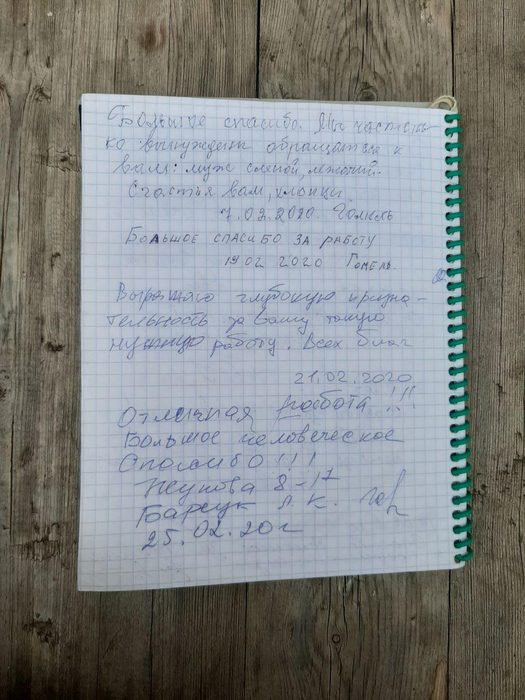 Большое спасибо. Мы частень
ко вынуждены обращаться к
вам: муж слепой, лежачий.
Счастья вам, хлопцы
7.02.2020. Гомель
Большое спасибо за работу
19 02 2020 Гомель.
Выражаю глубокую призна-
тельность за вашу такую
нужную работу. Всех благ
21.02.2020
Отличная работа !!!
Большое человеческое
Спасибо!!!
Жукова 8-17
Барсук Л. К.
25.02.20г